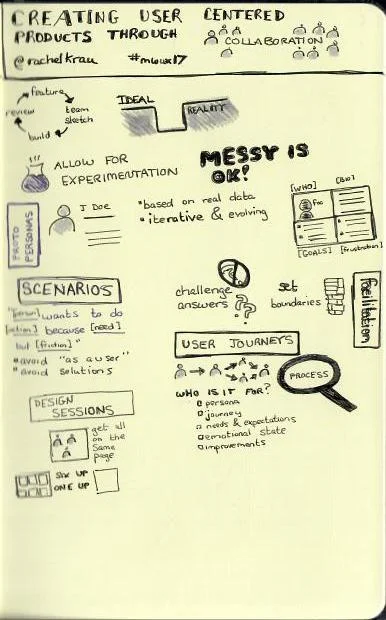 CREATING USER CENTERED
PRODUCTS THROUGH
COLLABORATION
@rachelkrau #mwux17
feature
team
sketch
build
review
IDEAL
REALITY
ALLOW FOR
EXPERIMENTATION
MESSY IS
OK!
PROTO
PERSONAS
J Doe
*based on real data
*iterative & evolving
[WHO]
[BIO]
Foo
[GOALS]
[frustration]
SCENARIOS
[person] wants to do
[action] because [need]
but [friction]"
*avoid "as a user"
*avoid solutions
challenge
answers
??
set
boundaries
Facilitation
USER JOURNEYS
PROCESS
WHO IS IT FOR?
persona
journey
needs & expectations
emotional state
improvements
DESIGN
SESSIONS
get all
on the
same
page
SIX UP
ONE UP